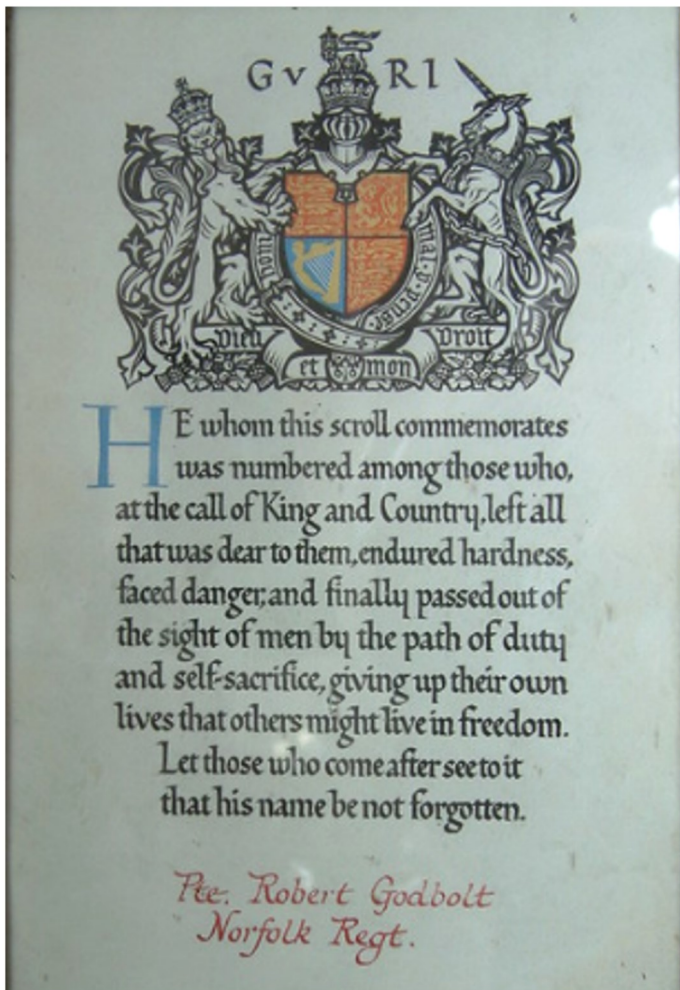 G V R I
mal·y·pense
Dieu Droit
et mon
HE whom this scroll commemorates
was numbered among those who,
at the call of King and Country, left all
that was dear to them, endured hardness,
faced danger, and finally passed out of
the sight of men by the path of duty
and self-sacrifice, giving up their own
lives that others might live in freedom.
Let those who come after see to it
that his name be not forgotten.
Pte. Robert Godbolt
Norfolk Regt.